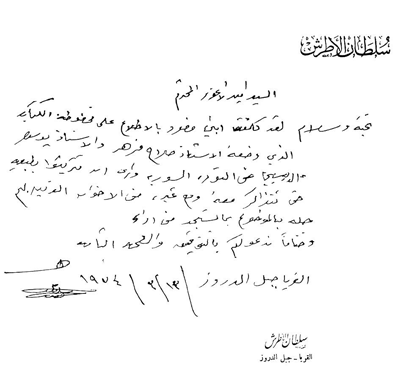 سلطان الأطرش
السيد
المحترم
تحية وسلام لقد كلفت ابني منصور بالاطلاع على مخطوطة الكتاب
الذي وضعه الاستاذ صلاح مزهر والاستاذ يوسف
الدبيسي عن الثورة السورية وارى ان تتريثوا بطبعه
حتى نتذاكر معه ومع غيره من الاخوان الذين لهم
صلة بالموضوع بما يستجد من اراء
وختاماً ندعو لكم بالتوفيق
القريا جبل الدروز ١٣ / ٣ / ١٩٧٤
سلطان الأطرش
القريا - جبل الدروز